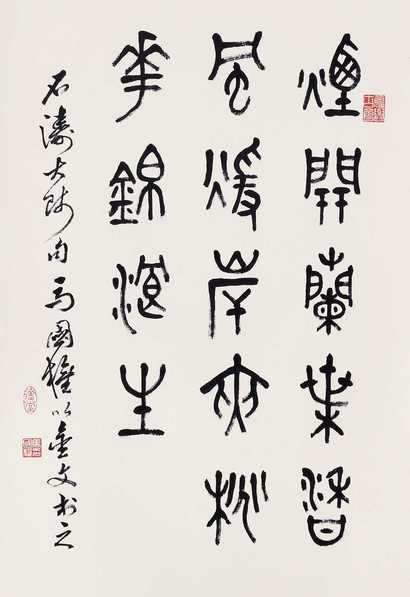 煙開蘭葉香
風暖岸夾桃
華錦浪生
石濤大師句馬國權以金文書之